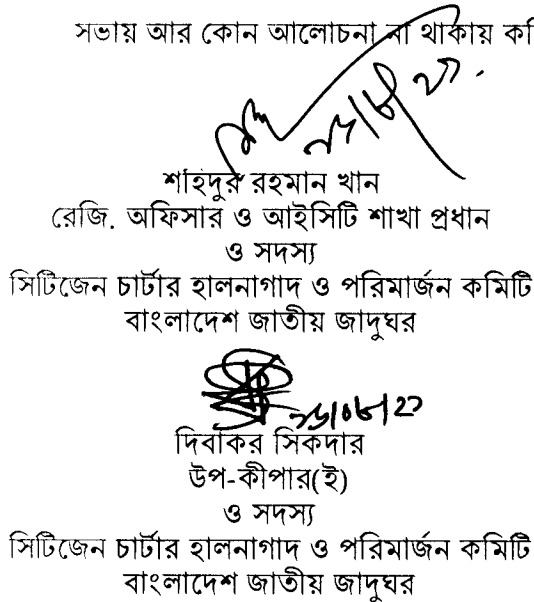 সভায় আর কোন আলোচনা না থাকায় কমি
শহিদুর রহমান খান
রেজি. অফিসার ও আইসিটি শাখা প্রধান
ও সদস্য
সিটিজেন চার্টার হালনাগাদ ও পরিমার্জন কমিটি
বাংলাদেশ জাতীয় জাদুঘর
দিবাকর সিকদার
উপ-কীপার(ই)
ও সদস্য
সিটিজেন চার্টার হালনাগাদ ও পরিমার্জন কমিটি
বাংলাদেশ জাতীয় জাদুঘর